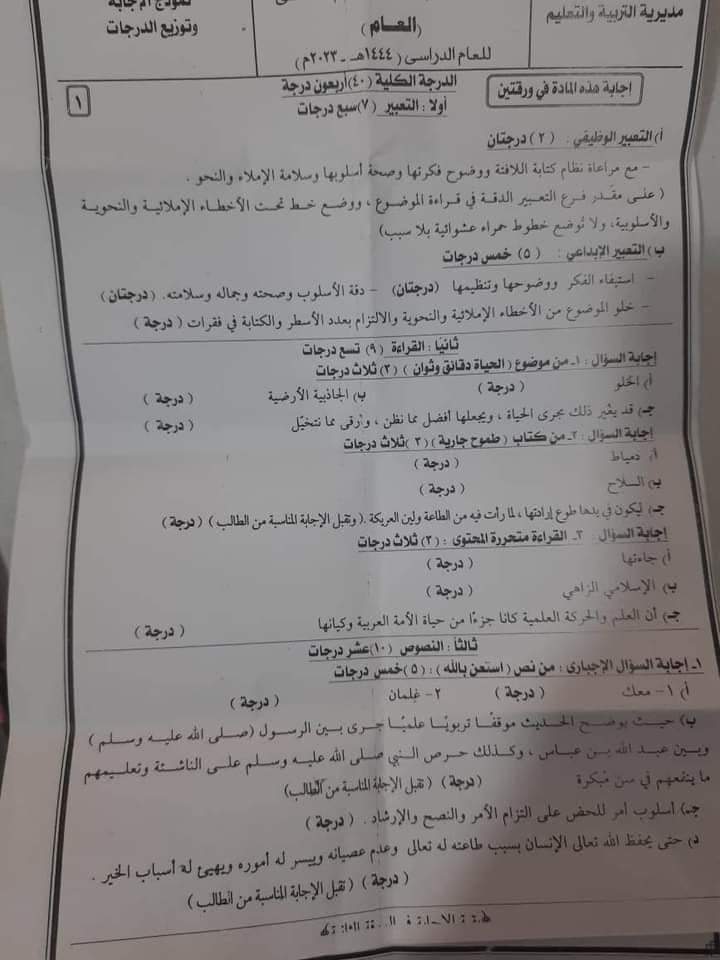 نموذج الإجابة
وتوزيع الدرجات
(العام)
للعام الدراسى (١٤٤٤هـ - ٢٠٢٣م)
مديرية التربية والتعليم
إجابة هذه المادة في ورقتين
الدرجة الكلية (٤٠) أربعون درجة
١
أولا : التعبير (٧) سبع درجات
أ) التعبير الوظيفي : (٢) درجتان
- مع مراعاة نظام كتابة اللافتة ووضوح فكرتها وصحة أسلوبها وسلامة الإملاء والنحو .
( على مقدر فرع التعبير الدقة في قراءة الموضوع ، ووضع خط تحت الأخطاء الإملائية والنحوية
والأسلوبية، ولا تُوضع خطوط حمراء عشوائية بلا سبب)
ب) التعبير الإبداعي : (٥) خمس درجات
- استيفاء الفكر ووضوحها وتنظيمها (درجتان) - دقة الأسلوب وصحته وجماله وسلامته. (درجتان)
- خلو الموضوع من الأخطاء الإملائية والنحوية والالتزام بعدد الأسطر والكتابة في فقرات (درجة)
ثانيًا : القراءة (٩) تسع درجات
إجابة السؤال : ١- من موضوع (الحياة دقائق وثوان) (٣) ثلاث درجات
أ) الحلو (درجة) ب) الجاذبية الأرضية (درجة)
جـ) قد يغير ذلك مجرى الحياة ، ويجعلها أفضل مما نظن ، وأرقى مما نتخيّل (درجة)
إجابة السؤال : ٢- من كتاب (طموح جارية) (٣) ثلاث درجات
أ) دمياط (درجة)
ب) السلاح (درجة)
جـ) ليكون في يدها طوع إرادتها ، لما رأت فيه من الطاعة ولين العريكة. (وتقبل الإجابة المناسبة من الطالب) (درجة)
إجابة السؤال : ٣- القراءة متحررة المحتوى : (٣) ثلاث درجات
أ) جاءتها (درجة)
ب) الإسلامي الزاهي (درجة)
جـ) أن العلم والحركة العلمية كانا جزءًا من حياة الأمة العربية وكيانها (درجة)
ثالثاً : النصوص (١٠) عشر درجات
١- إجابة السؤال الإجبارى : من نص (استعن بالله) : (٥) خمس درجات
أ) ١- معك (درجة) ٢- غلمان (درجة)
ب) حيث يوضح الحديث موقفًا تربويًا علميًا جرى بين الرسول (صلى الله عليه وسلم)
وبين عبد الله بن عباس ، وكذلك حرص النبي صلى الله عليه وسلم على الناشئة وتعليمهم
ما ينفعهم في سن مُبكرة (درجة) (تقبل الإجابة المناسبة من الطالب)
جـ) أسلوب أمر للحض على التزام الأمر والنصح والإرشاد . (درجة)
د) حتى يحفظ الله تعالى الإنسان بسبب طاعته له تعالى وعدم عصيانه وييسر له أموره ويهيئ له أسباب الخير .
(درجة) (تقبل الإجابة المناسبة من الطالب)